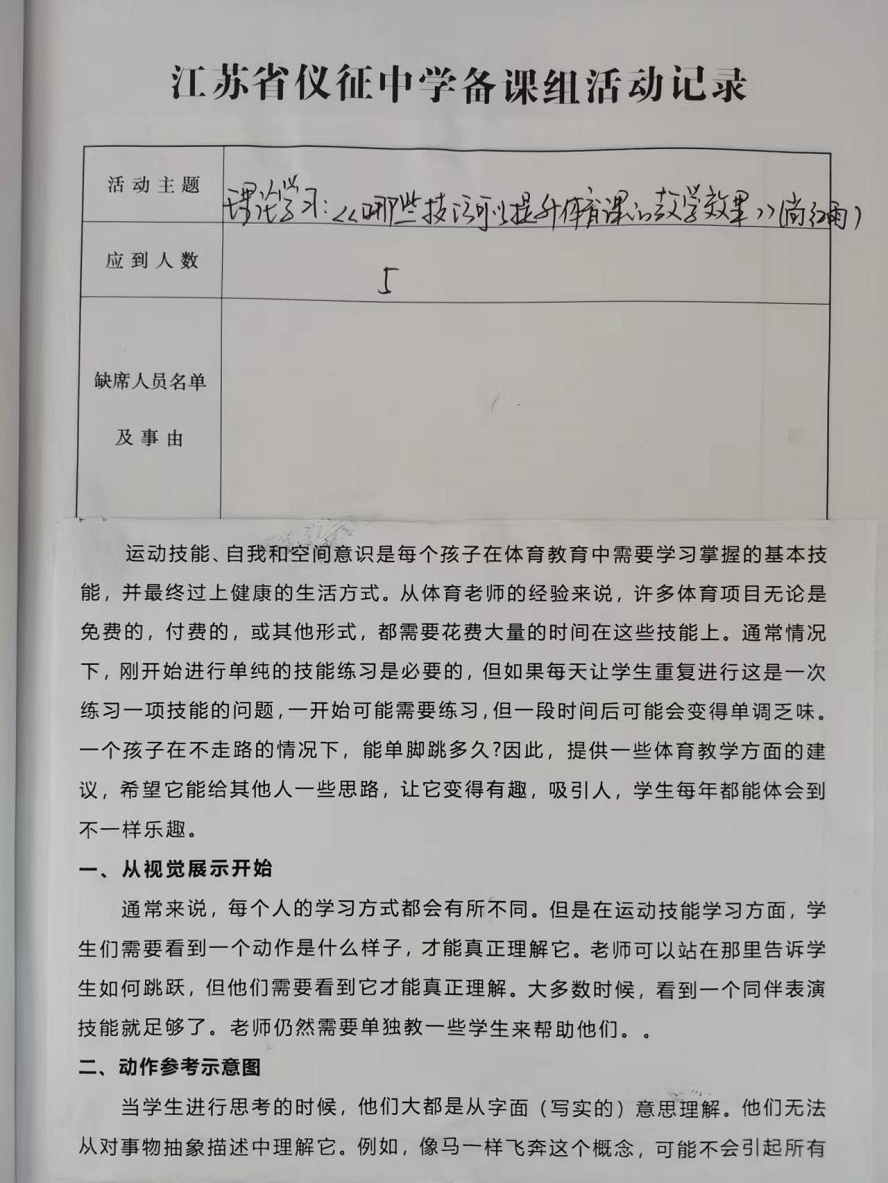 江苏省仪征中学备课组活动记录
活动主题
理论学习：《哪些技巧可以提升体育课的教学效果》（尚红雨）
应到人数
5
缺席人员名单
及事由
运动技能、自我和空间意识是每个孩子在体育教育中需要学习掌握的基本技
能，并最终过上健康的生活方式。从体育老师的经验来说，许多体育项目无论是
免费的，付费的，或其他形式，都需要花费大量的时间在这些技能上。通常情况
下，刚开始进行单纯的技能练习是必要的，但如果每天让学生重复进行这是一次
练习一项技能的问题，一开始可能需要练习，但一段时间后可能会变得单调乏味。
一个孩子在不走路的情况下，能单脚跳多久？因此，提供一些体育教学方面的建
议，希望它能给其他人一些思路，让它变得有趣，吸引人，学生每年都能体会到
不一样乐趣。
一、从视觉展示开始
通常来说，每个人的学习方式都会有所不同。但是在运动技能学习方面，学
生们需要看到一个动作是什么样子，才能真正理解它。老师可以站在那里告诉学
生如何跳跃，但他们需要看到它才能真正理解。大多数时候，看到一个同伴表演
技能就足够了。老师仍然需要单独教一些学生来帮助他们。。
二、动作参考示意图
当学生进行思考的时候，他们大都是从字面（写实的）意思理解。他们无法
从对事物抽象描述中理解它。例如，像马一样飞奔这个概念，可能不会引起所有